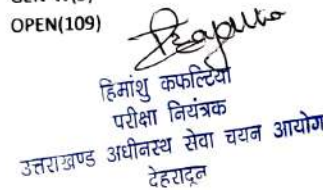 OPEN(109)
हिमांशु कफल्टिया
परीक्षा नियंत्रक
उत्तराखण्ड अधीनस्थ सेवा चयन आयोग
देहरादून